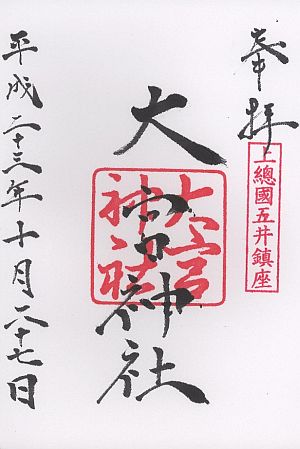 奉拝
上總國五井鎮座
大宮神社
大宮神社
平成二十三年十月二十七日